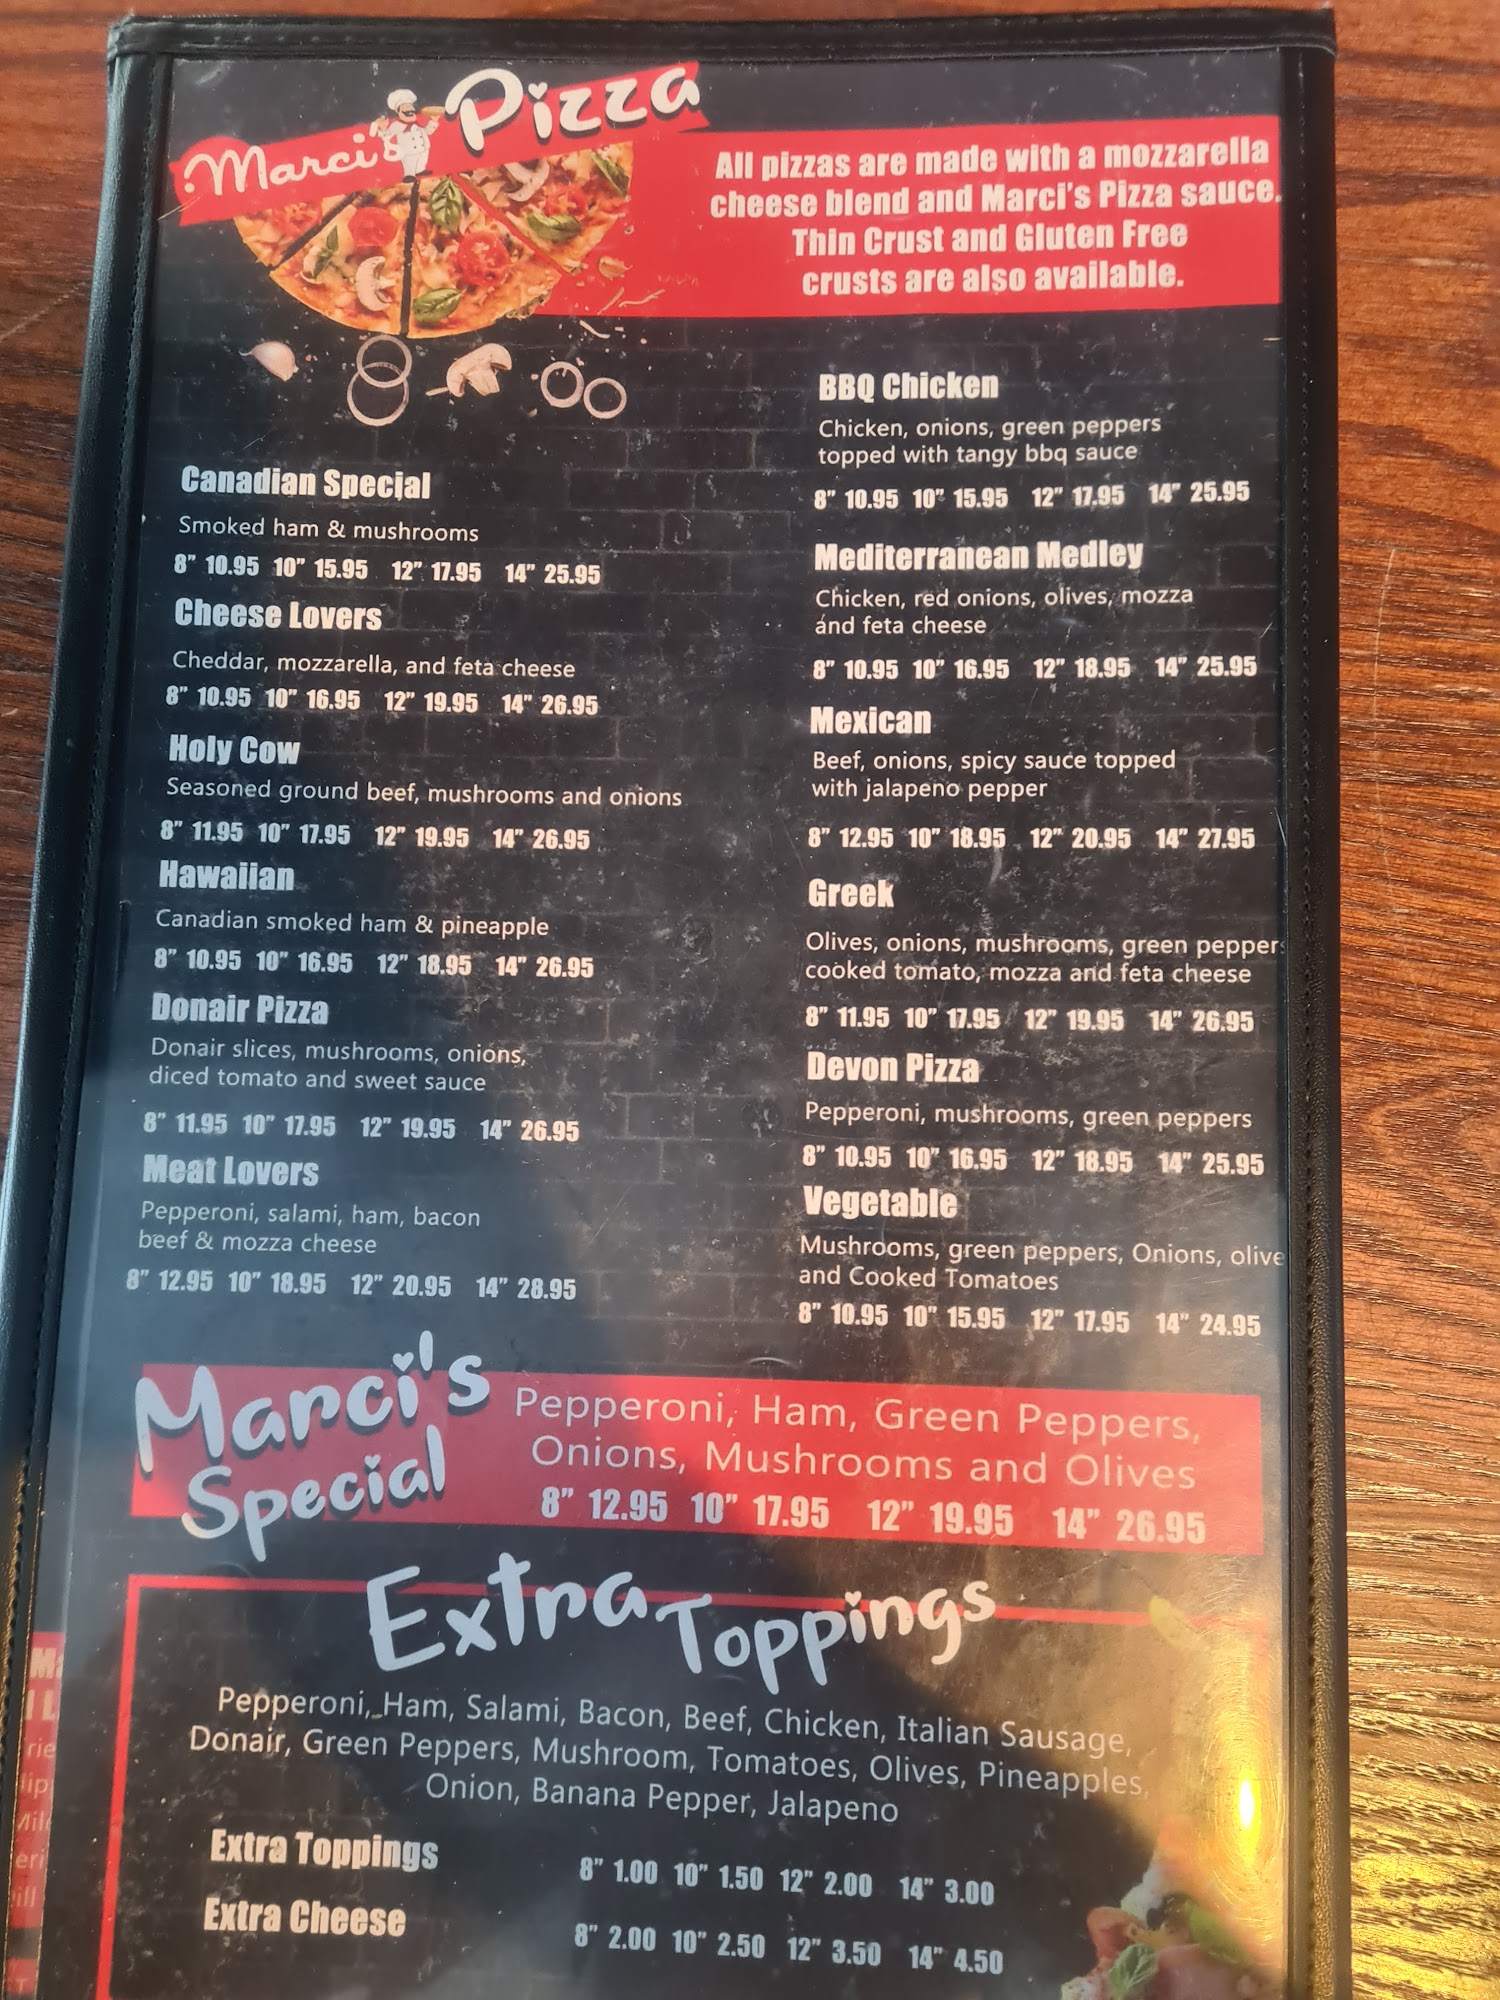 Marci's Pizza
All pizzas are made with a mozzarella
cheese blend and Marci's Pizza sauce.
Thin Crust and Gluten Free
crusts are also available.
Canadian Special
Smoked ham & mushrooms
8" 10.95 10" 15.95 12" 17.95 14" 25.95
Cheese Lovers
Cheddar, mozzarella, and feta cheese
8" 10.95 10" 16.95 12" 19.95 14" 26.95
Holy Cow
Seasoned ground beef, mushrooms and onions
8" 11.95 10" 17.95 12" 19.95 14" 26.95
Hawaiian
Canadian smoked ham & pineapple
8" 10.95 10" 16.95 12" 18.95 14" 26.95
Donair Pizza
Donair slices, mushrooms, onions,
diced tomato and sweet sauce
8" 11.95 10" 17.95 12" 19.95 14" 26.95
Meat Lovers
Pepperoni, salami, ham, bacon
beef & mozza cheese
8" 12.95 10" 18.95 12" 20.95 14" 28.95
BBQ Chicken
Chicken, onions, green peppers
topped with tangy bbq sauce
8" 10.95 10" 15.95 12" 17.95 14" 25.95
Mediterranean Medley
Chicken, red onions, olives, mozza
and feta cheese
8" 10.95 10" 16.95 12" 18.95 14" 25.95
Mexican
Beef, onions, spicy sauce topped
with jalapeno pepper
8" 12.95 10" 18.95 12" 20.95 14" 27.95
Greek
Olives, onions, mushrooms, green peppers
cooked tomato, mozza and feta cheese
8" 11.95 10" 17.95 12" 19.95 14" 26.95
Devon Pizza
Pepperoni, mushrooms, green peppers
8" 10.95 10" 16.95 12" 18.95 14" 25.95
Vegetable
Mushrooms, green peppers, Onions, olive
and Cooked Tomatoes
8" 10.95 10" 15.95 12" 17.95 14" 24.95
Marci's
Special
Pepperoni, Ham, Green Peppers,
Onions, Mushrooms and Olives
8" 12.95 10" 17.95 12" 19.95 14" 26.95
Extra Toppings
Pepperoni, Ham, Salami, Bacon, Beef, Chicken, Italian Sausage,
Donair, Green Peppers, Mushroom, Tomatoes, Olives, Pineapples,
Onion, Banana Pepper, Jalapeno
Extra Toppings 8" 1.00 10" 1.50 12" 2.00 14" 3.00
Extra Cheese 8" 2.00 10" 2.50 12" 3.50 14" 4.50